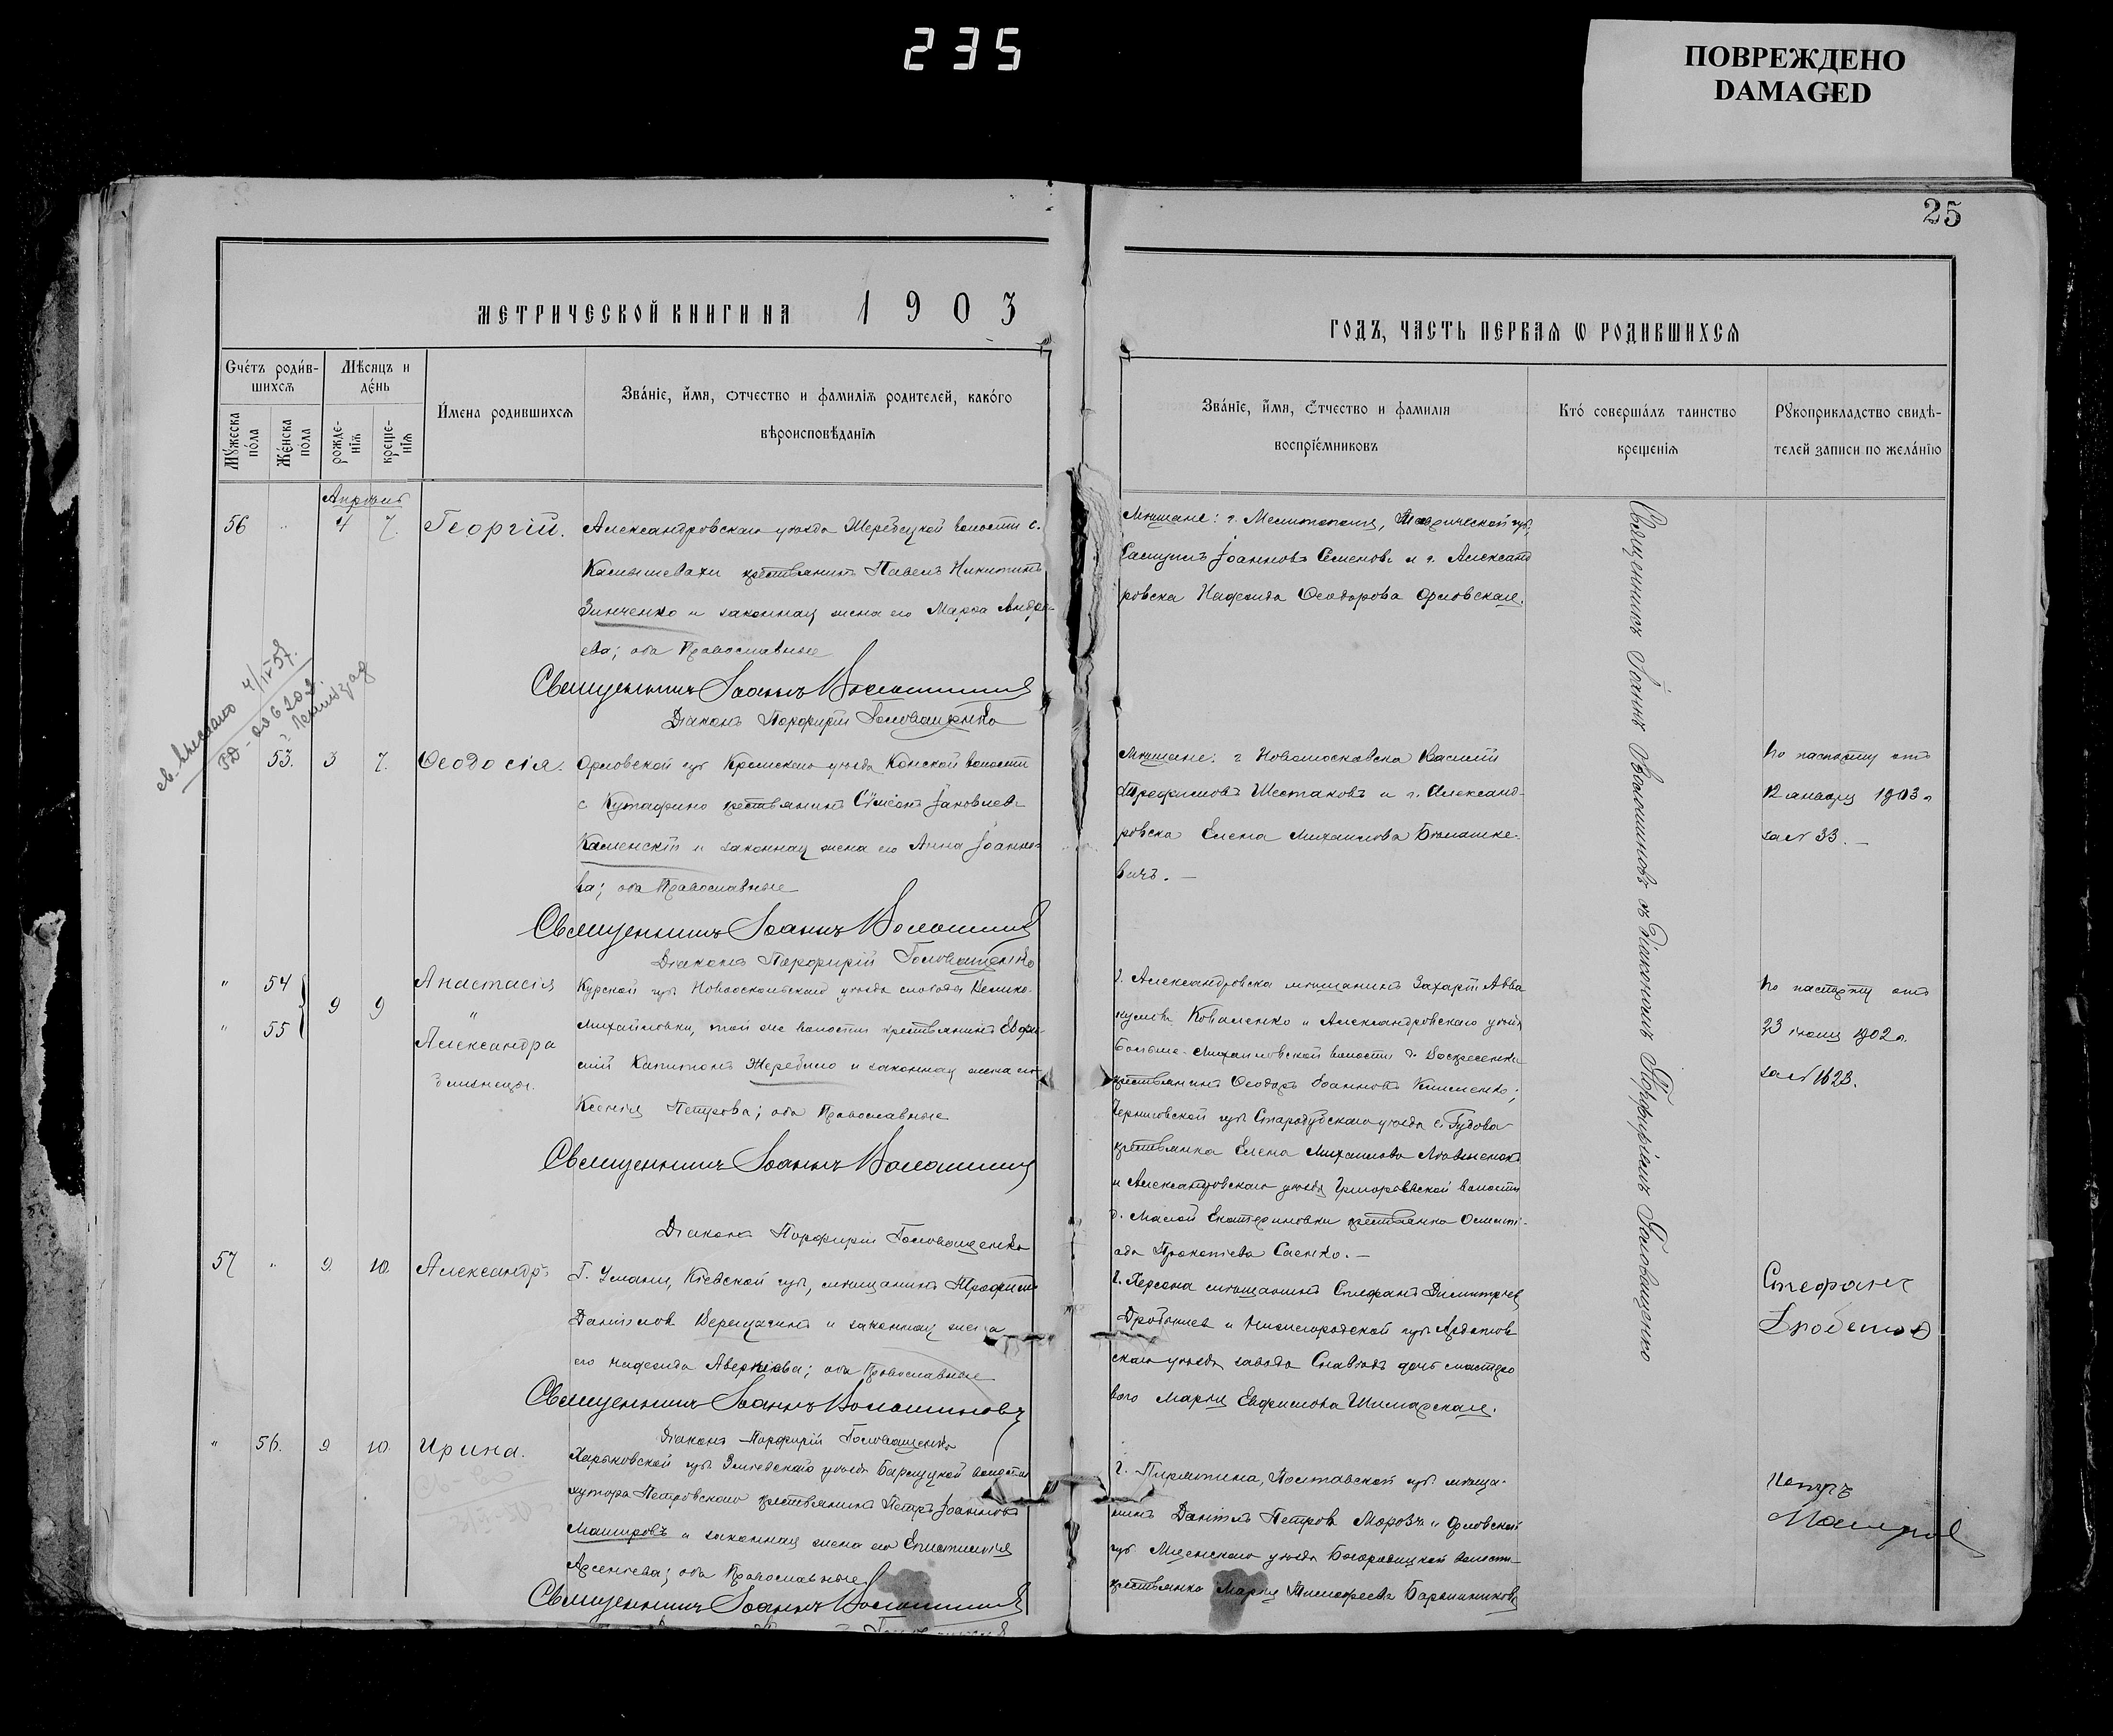 235
ПОВРЕЖДЕНО
DAMAGED
25
МЕТРИЧЕСКОЙ КНИГИ НА 1903
ГОДЪ, ЧАСТЬ ПЕРВАЯ Ѡ РОДИВШИХСЯ
Счéтъ роди́в-
шихсѧ
Мѣсяцъ и
дéнь
Мꙋжеска
пóла
Жéнска
пола
рожде-
нїѧ
креще-
нїѧ
И́мена родившихсѧ
Звáнїе, и́мя, ѻтчество и фамилїѧ родителей, какóго
вѣроисповѣданїѧ
Звáнїе, и́мя, ѻтчество и фамилія
воспрїéмниковъ
Ктó совершáлъ таинство
крещенїѧ
Рꙋкоприкладство свидѣ-
телей записи по желáнїю
Апрѣль
56 " 4 7. Георгій.
Александровскаго уѣзда Жеребецкой волости с.
Камышевахи крестьянинъ Павелъ Никитинъ
Зинченко и законная жена его Марѳа Андре-
ева; оба Православные
Священникъ Іоаннъ Волошиновъ
Діаконъ Порфирій Головащенко
Мѣщане: г. Мелитополя, Таврической губ.
Самуилъ Іоанновъ Семеновъ и г. Александ
ровска Надежда Ѳеодорова Орловская.
Священникъ Іоаннъ Волошиновъ съ Діакономъ Порфиріемъ Головащенко
4/IV 57.
53. 3 7. Ѳеодосія.
Орловской губ. Кромскаго уѣзда Конской волости
с. Кутафино крестьянинъ Сѵмеонъ Іаковлевъ
Каменскій и законная жена его Анна Іоанно-
ва; оба Православные
Священникъ Іоаннъ Волошиновъ
Діаконъ Порфирій Головащенко
Мѣщане: г. Новомосковска Василій
Трофимовъ Шестаковъ и г. Александ-
ровска Елена Михаилова
вичъ. —
По паспорту отъ
12 января 1903 г.
за № 33. —
" 54 Анастасія
9 9 "
" 55 Александра
близнецы.
Курской губ. Новооскольскаго уѣзда слободы Велико-
Михайловки, той же волости крестьянинъ Евфи-
мій Капитоновъ Жеребило и законная жена его
Ксенія Петрова; оба Православные
Священникъ Іоаннъ Волошиновъ
Діаконъ Порфирій Головащенко
г. Александровска мѣщанинъ Захарій Авва
кумовъ Коваленко и Александровскаго уѣзда
Больше-Михайловской волости д. Воскресенки
крестьянинъ Ѳеодоръ Іоанновъ Клименко;
Черниговской губ. Стародубскаго уѣзда с. Гудова
крестьянка Елена Михаилова
и Александровскаго уѣзда Григорьевской волости
д. Малой Екатериновки крестьянка Олимпі-
ада Прокопіева Саенко. —
По паспорту отъ
23 іюня 1902 г.
за № 1623.
57 " 9 10. Александръ
Г. Умани, Кіевской губ., мѣщанинъ Трофимъ
Даніиловъ Верещагинъ и законная жена
его Надежда Аверкіева; оба Православные
Священникъ Іоаннъ Волошиновъ
Діаконъ Порфирій Головащенко
г. Херсона мѣщанинъ Стефанъ Димитріев
и Нижегородской губ. Ардатов
скаго уѣзда завода дочь мастеро
вого Марія Евфимова
Стефанъ
" 56. 9 10. Ирина.
Харьковской губ. Зміевскаго уѣзда волости
хутора Петровскаго крестьянинъ Петръ Іоанновъ
Машировъ и законная жена его Епистимія
Арсеніева; оба Православные
Священникъ Іоаннъ Волошиновъ
г. Пирятина, Полтавской губ. мѣща-
нинъ Даніилъ Петровъ Морозъ и Орловской
губ. Мценскаго уѣзда Богородицкой волости
крестьянка Марія Тимофеева
Петръ
Машировъ